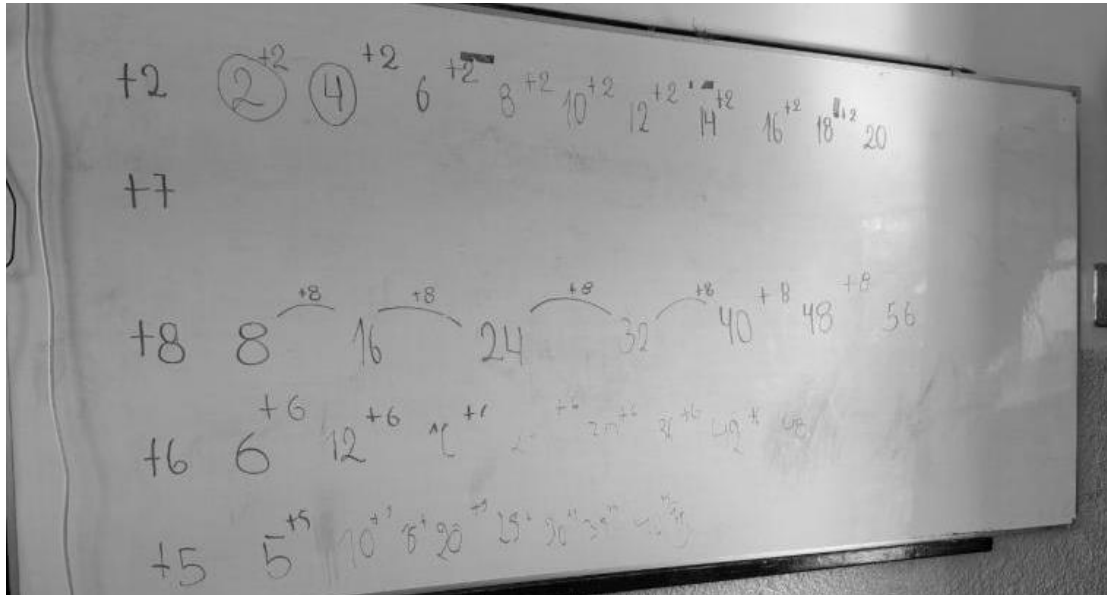 +2 2 +2 4 +2 6 +2 8 +2 10 +2 12 +2 14 +2 16 +2 18 +2 20
+7
+8 8 +8 16 +8 24 +8 32 +8 40 +8 48 +8 56
+6 6 +6 12 +6 +6 +6 +6 42 48
+5 5 +5 10 20 +5 25 30 35